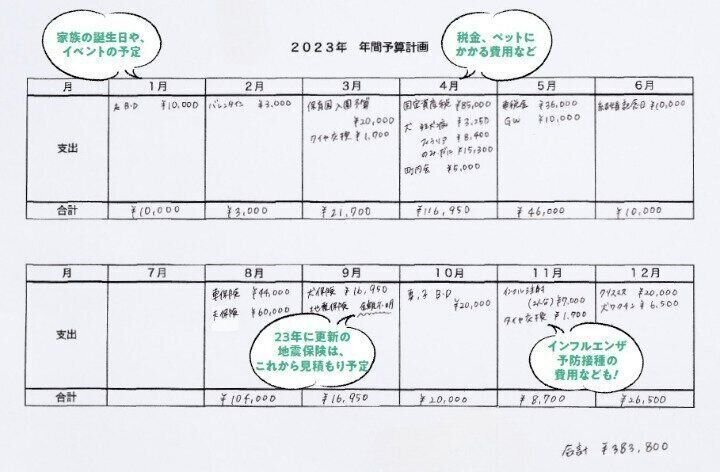 家族の誕生日や、
イベントの予定
2023年　年間予算計画
税金、ペットに
かかる費用など
月 1月 2月 3月 4月 5月 6月
支出
B.D ¥10,000
バレンタイン ¥3,000
保育園入園準備
¥20,000
タイヤ交換 ¥1,700
固定資産税 ¥85,000
犬 狂犬病 ¥3,250
フィラリア ¥8,400
のみ・ダニ ¥15,300
町内会 ¥5,000
車税金 ¥36,000
GW ¥10,000
結婚記念日 ¥10,000
合計 ¥10,000 ¥3,000 ¥21,700 ¥116,950 ¥46,000 ¥10,000
月 7月 8月 9月 10月 11月 12月
支出
車保険 ¥44,000
夫保険 ¥60,000
犬保険 ¥16,950
地震保険 金額不明
妻、子 B.D
¥20,000
インフル注射
(2人分) ¥7,000
タイヤ交換 ¥1,700
クリスマス ¥20,000
犬ワクチン ¥6,500
23年に更新の
地震保険は、
これから見積もり予定
インフルエンザ
予防接種の
費用なども!
合計 ¥104,000 ¥16,950 ¥20,000 ¥8,700 ¥26,500
合計 ¥383,800